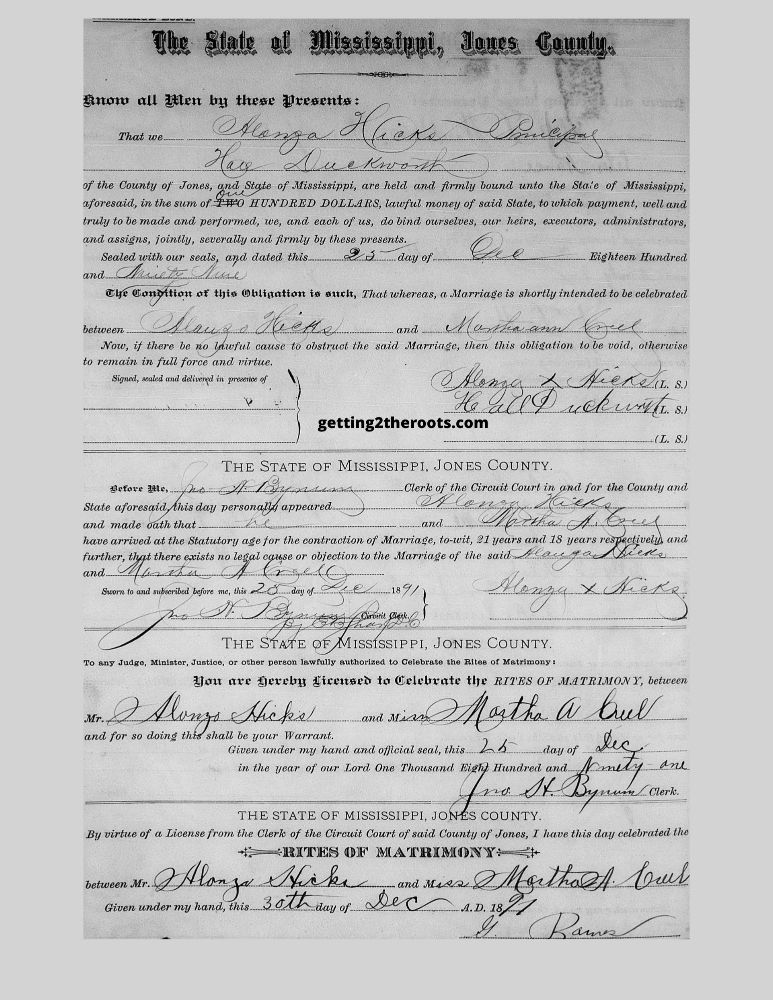 The State of Mississippi, Jones County.
Know all Men by these Presents:
That we Alonza Hicks Principal
Duckworth
of the County of Jones, and State of Mississippi, are held and firmly bound unto the State of Mississippi,
aforesaid, in the sum of TWO one HUNDRED DOLLARS, lawful money of said State, to which payment, well and
truly to be made and performed, we, and each of us, do bind ourselves, our heirs, executors, administrators,
and assigns, jointly, severally and firmly by these presents.
Sealed with our seals, and dated this 25 day of Dec Eighteen Hundred
and Ninety
The Condition of this Obligation is such, That whereas, a Marriage is shortly intended to be celebrated
between Alonzo Hicks and Martha ann Creel
Now, if there be no lawful cause to obstruct the said Marriage, then this obligation to be void, otherwise
to remain in full force and virtue.
Signed, sealed and delivered in presence of
Alonza x Hicks (L. S.)
Hall Duckworth (L. S.)
getting2theroots.com
(L. S.)
THE STATE OF MISSISSIPPI, JONES COUNTY.
Before Me, Jno H Bynum Clerk of the Circuit Court in and for the County and
State aforesaid, this day personally appeared Alonza Hicks
and made oath that he and Martha A. Creel
have arrived at the Statutory age for the contraction of Marriage, to-wit, 21 years and 18 years respectively, and
further, that there exists no legal cause or objection to the Marriage of the said Alonza Hicks
and Martha A Creel
Sworn to and subscribed before me, this 25 day of Dec 1891 Alonza x Hicks
Jno H. Bynum Circuit Clerk.
THE STATE OF MISSISSIPPI, JONES COUNTY.
To any Judge, Minister, Justice, or other person lawfully authorized to Celebrate the Rites of Matrimony:
You are Hereby Licensed to Celebrate the RITES OF MATRIMONY, between
Mr. Alonzo Hicks and Miss Martha A Creel
and for so doing this shall be your Warrant.
Given under my hand and official seal, this 25 day of Dec
in the year of our Lord One Thousand Eight Hundred and Ninety one
Jno. H. Bynum Clerk.
THE STATE OF MISSISSIPPI, JONES COUNTY.
By virtue of a License from the Clerk of the Circuit Court of said County of Jones, I have this day celebrated the
RITES OF MATRIMONY
between Mr. Alonza Hicks and Miss Martha A. Creel
Given under my hand, this 30th day of Dec A.D. 1891